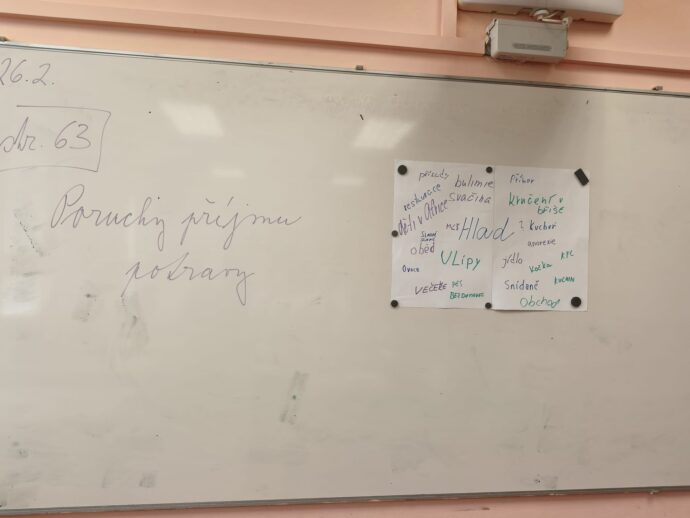 26.2.
str. 63
Poruchy příjmu
potravy
přírody
bulimie
restaurace
svačina
děti v Africe
Hlad
oběd
U Lípy
Ovoce
VEČEŘE
PES
Příbor
kručení v
břiše
Kuchař
anorexie
jídlo
KFC
Kočka
Snídaně
Obchod